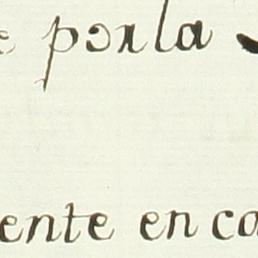 e por la
ente en ca